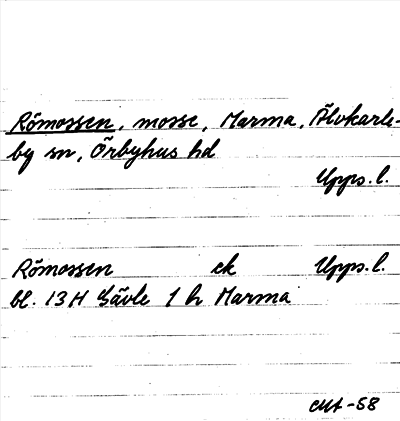 Römossen, mosse, Marma, Älvkarle-
by sn, Örbyhus hd
Upps. l.
Römossen ek Upps. l.
bl. 13 H Gävle 1 h Marma
-58